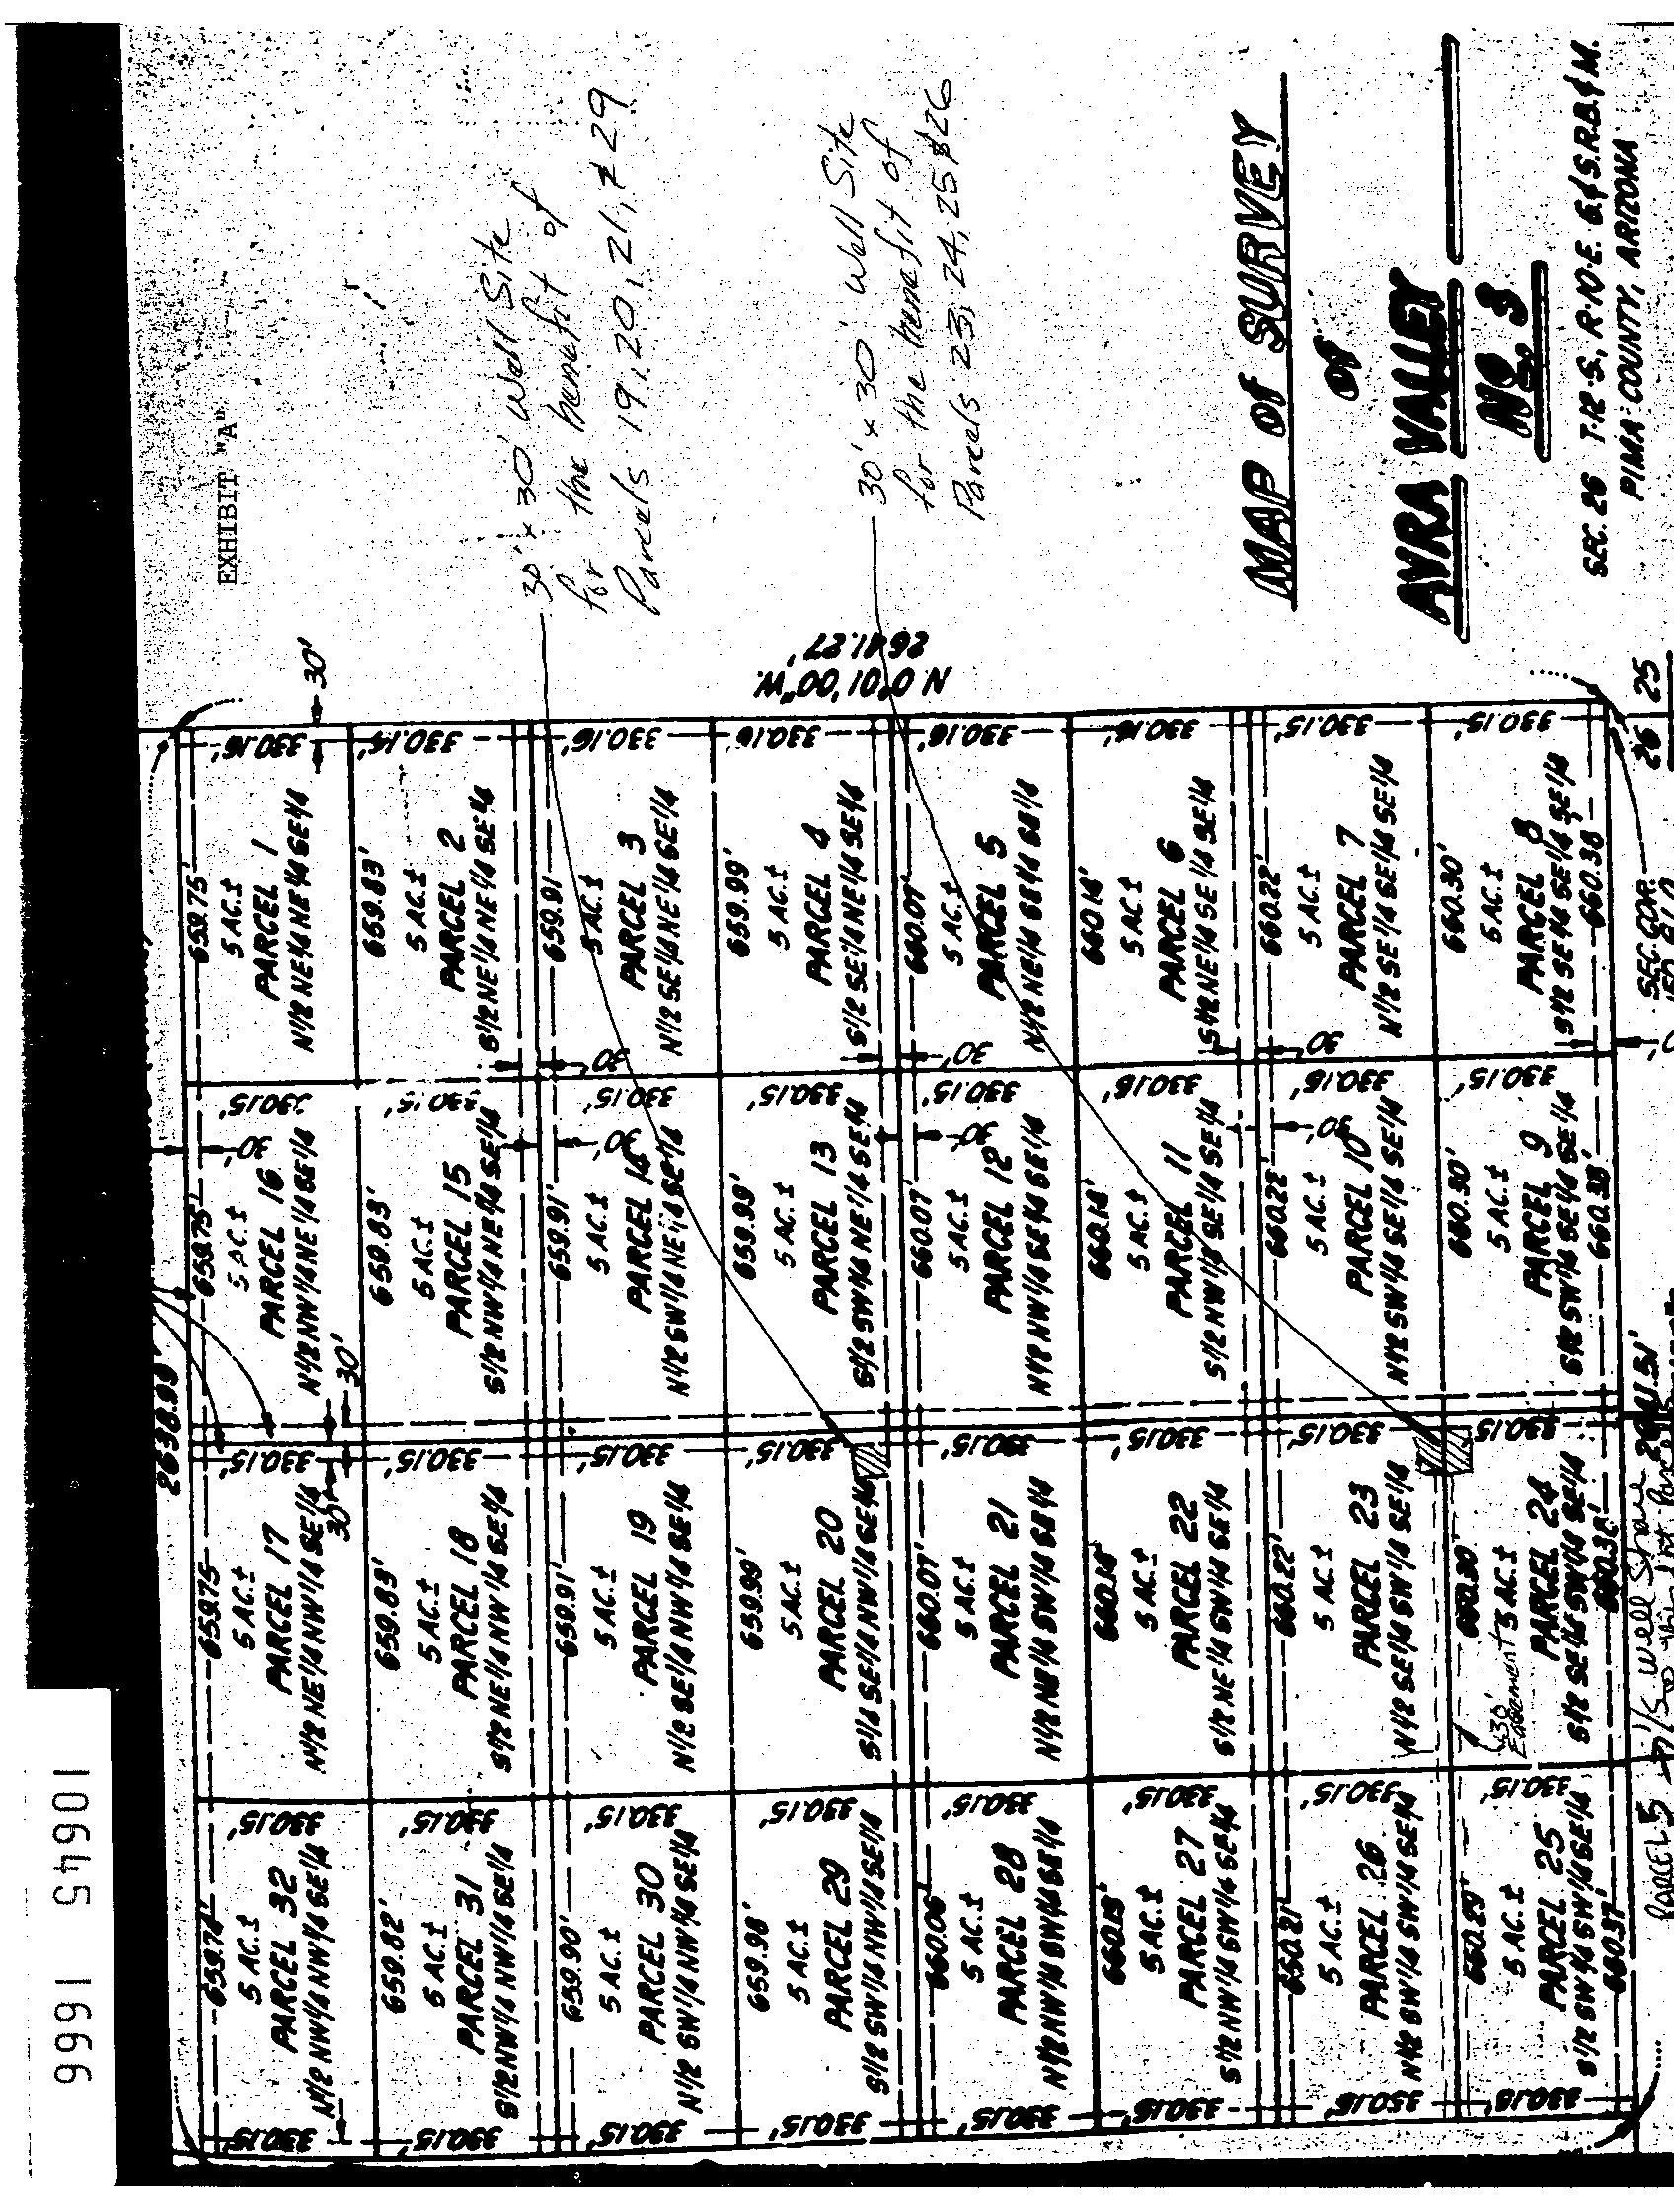 EXHIBIT "A"
30' x 30' Well Site
for the benefit of
Parcels 19, 20, 21, & 29
30' x 30' Well Site
for the benefit of
Parcels 23, 24, 25 & 26
MAP of SURVEY
of
AVRA VALLEY
NO. 3
SEC. 26 T-12-S, R-10-E. G.&S.R.B.&M.
PIMA COUNTY, ARIZONA
N 0°01'00"W.
2641.27'
30'
330.16'
330.14'
330.16'
330.16'
330.16'
330.16'
330.15'
330.15'
26 25
659.75'
5 AC.±
PARCEL 1
N1/2 NE1/4 NE1/4 SE1/4
659.83'
5 AC.±
PARCEL 2
S1/2 NE1/4 NE1/4 SE1/4
659.91'
5 AC.±
PARCEL 3
N1/2 SE1/4 NE1/4 SE1/4
659.99'
5 AC.±
PARCEL 4
S1/2 SE1/4 NE1/4 SE1/4
660.07'
5 AC.±
PARCEL 5
N1/2 NE1/4 SE1/4 SE1/4
660.14'
5 AC.±
PARCEL 6
S1/2 NE1/4 SE1/4 SE1/4
660.22'
5 AC.±
PARCEL 7
N1/2 SE1/4 SE1/4 SE1/4
660.30'
5 AC.±
PARCEL 8
S1/2 SE1/4 SE1/4 SE1/4
660.38
SEC. COR.
30'
30'
30'
330.15'
330.15'
330.15'
330.15'
330.15
330.16'
330.16'
330.15'
30'
30'
30'
30'
659.75'
5 AC.±
PARCEL 16
N1/2 NW1/4 NE1/4 SE1/4
659.83'
5 AC.±
PARCEL 15
S1/2 NW1/4 NE1/4 SE1/4
659.91'
5 AC.±
PARCEL 14
N1/2 SW1/4 NE1/4 SE1/4
659.99'
5 AC.±
PARCEL 13
S1/2 SW1/4 NE1/4 SE1/4
660.07'
5 AC.±
PARCEL 12
N1/2 NW1/4 SE1/4 SE1/4
660.14'
5 AC.±
PARCEL 11
S1/2 NW1/4 SE1/4 SE1/4
660.22'
5 AC.±
PARCEL 10
N1/2 SW1/4 SE1/4 SE1/4
660.30'
5 AC.±
PARCEL 9
S1/2 SW1/4 SE1/4 SE1/4
660.38'
2638.99'
30'
30'
2641.51'
330.15'
330.15'
330.15'
330.15'
330.15'
330.15'
330.15'
330.15'
659.75
5 AC.±
PARCEL 17
N1/2 NE1/4 NW1/4 SE1/4
659.83'
5 AC.±
PARCEL 18
S1/2 NE1/4 NW1/4 SE1/4
659.91'
5 AC.±
PARCEL 19
N1/2 SE1/4 NW1/4 SE1/4
659.99'
5 AC.±
PARCEL 20
S1/2 SE1/4 NW1/4 SE1/4
660.07'
5 AC.±
PARCEL 21
N1/2 NE1/4 SW1/4 SE1/4
660.14'
5 AC.±
PARCEL 22
S1/2 NE1/4 SW1/4 SE1/4
660.22'
5 AC.±
PARCEL 23
N1/2 SE1/4 SW1/4 SE1/4
660.30'
5 AC.±
PARCEL 24
S1/2 SE1/4 SW1/4 SE1/4
660.38'
30'
Easement
1/5 Well Share
330.15'
330.15'
330.15'
330.15'
330.15'
330.15'
330.15'
330.15'
659.74'
5 AC.±
PARCEL 32
N1/2 NW1/4 NW1/4 SE1/4
659.82'
5 AC.±
PARCEL 31
S1/2 NW1/4 NW1/4 SE1/4
659.90'
5 AC.±
PARCEL 30
N1/2 SW1/4 NW1/4 SE1/4
659.98'
5 AC.±
PARCEL 29
S1/2 SW1/4 NW1/4 SE1/4
660.06'
5 AC.±
PARCEL 28
N1/2 NW1/4 SW1/4 SE1/4
660.13'
5 AC.±
PARCEL 27
S1/2 NW1/4 SW1/4 SE1/4
660.21'
5 AC.±
PARCEL 26
N1/2 SW1/4 SW1/4 SE1/4
660.29'
5 AC.±
PARCEL 25
S1/2 SW1/4 SW1/4 SE1/4
660.37'
PARCEL 5
330.15
330.15'
330.15'
330.15'
330.15'
330.16'
330.16'
330.15'
10645 1666